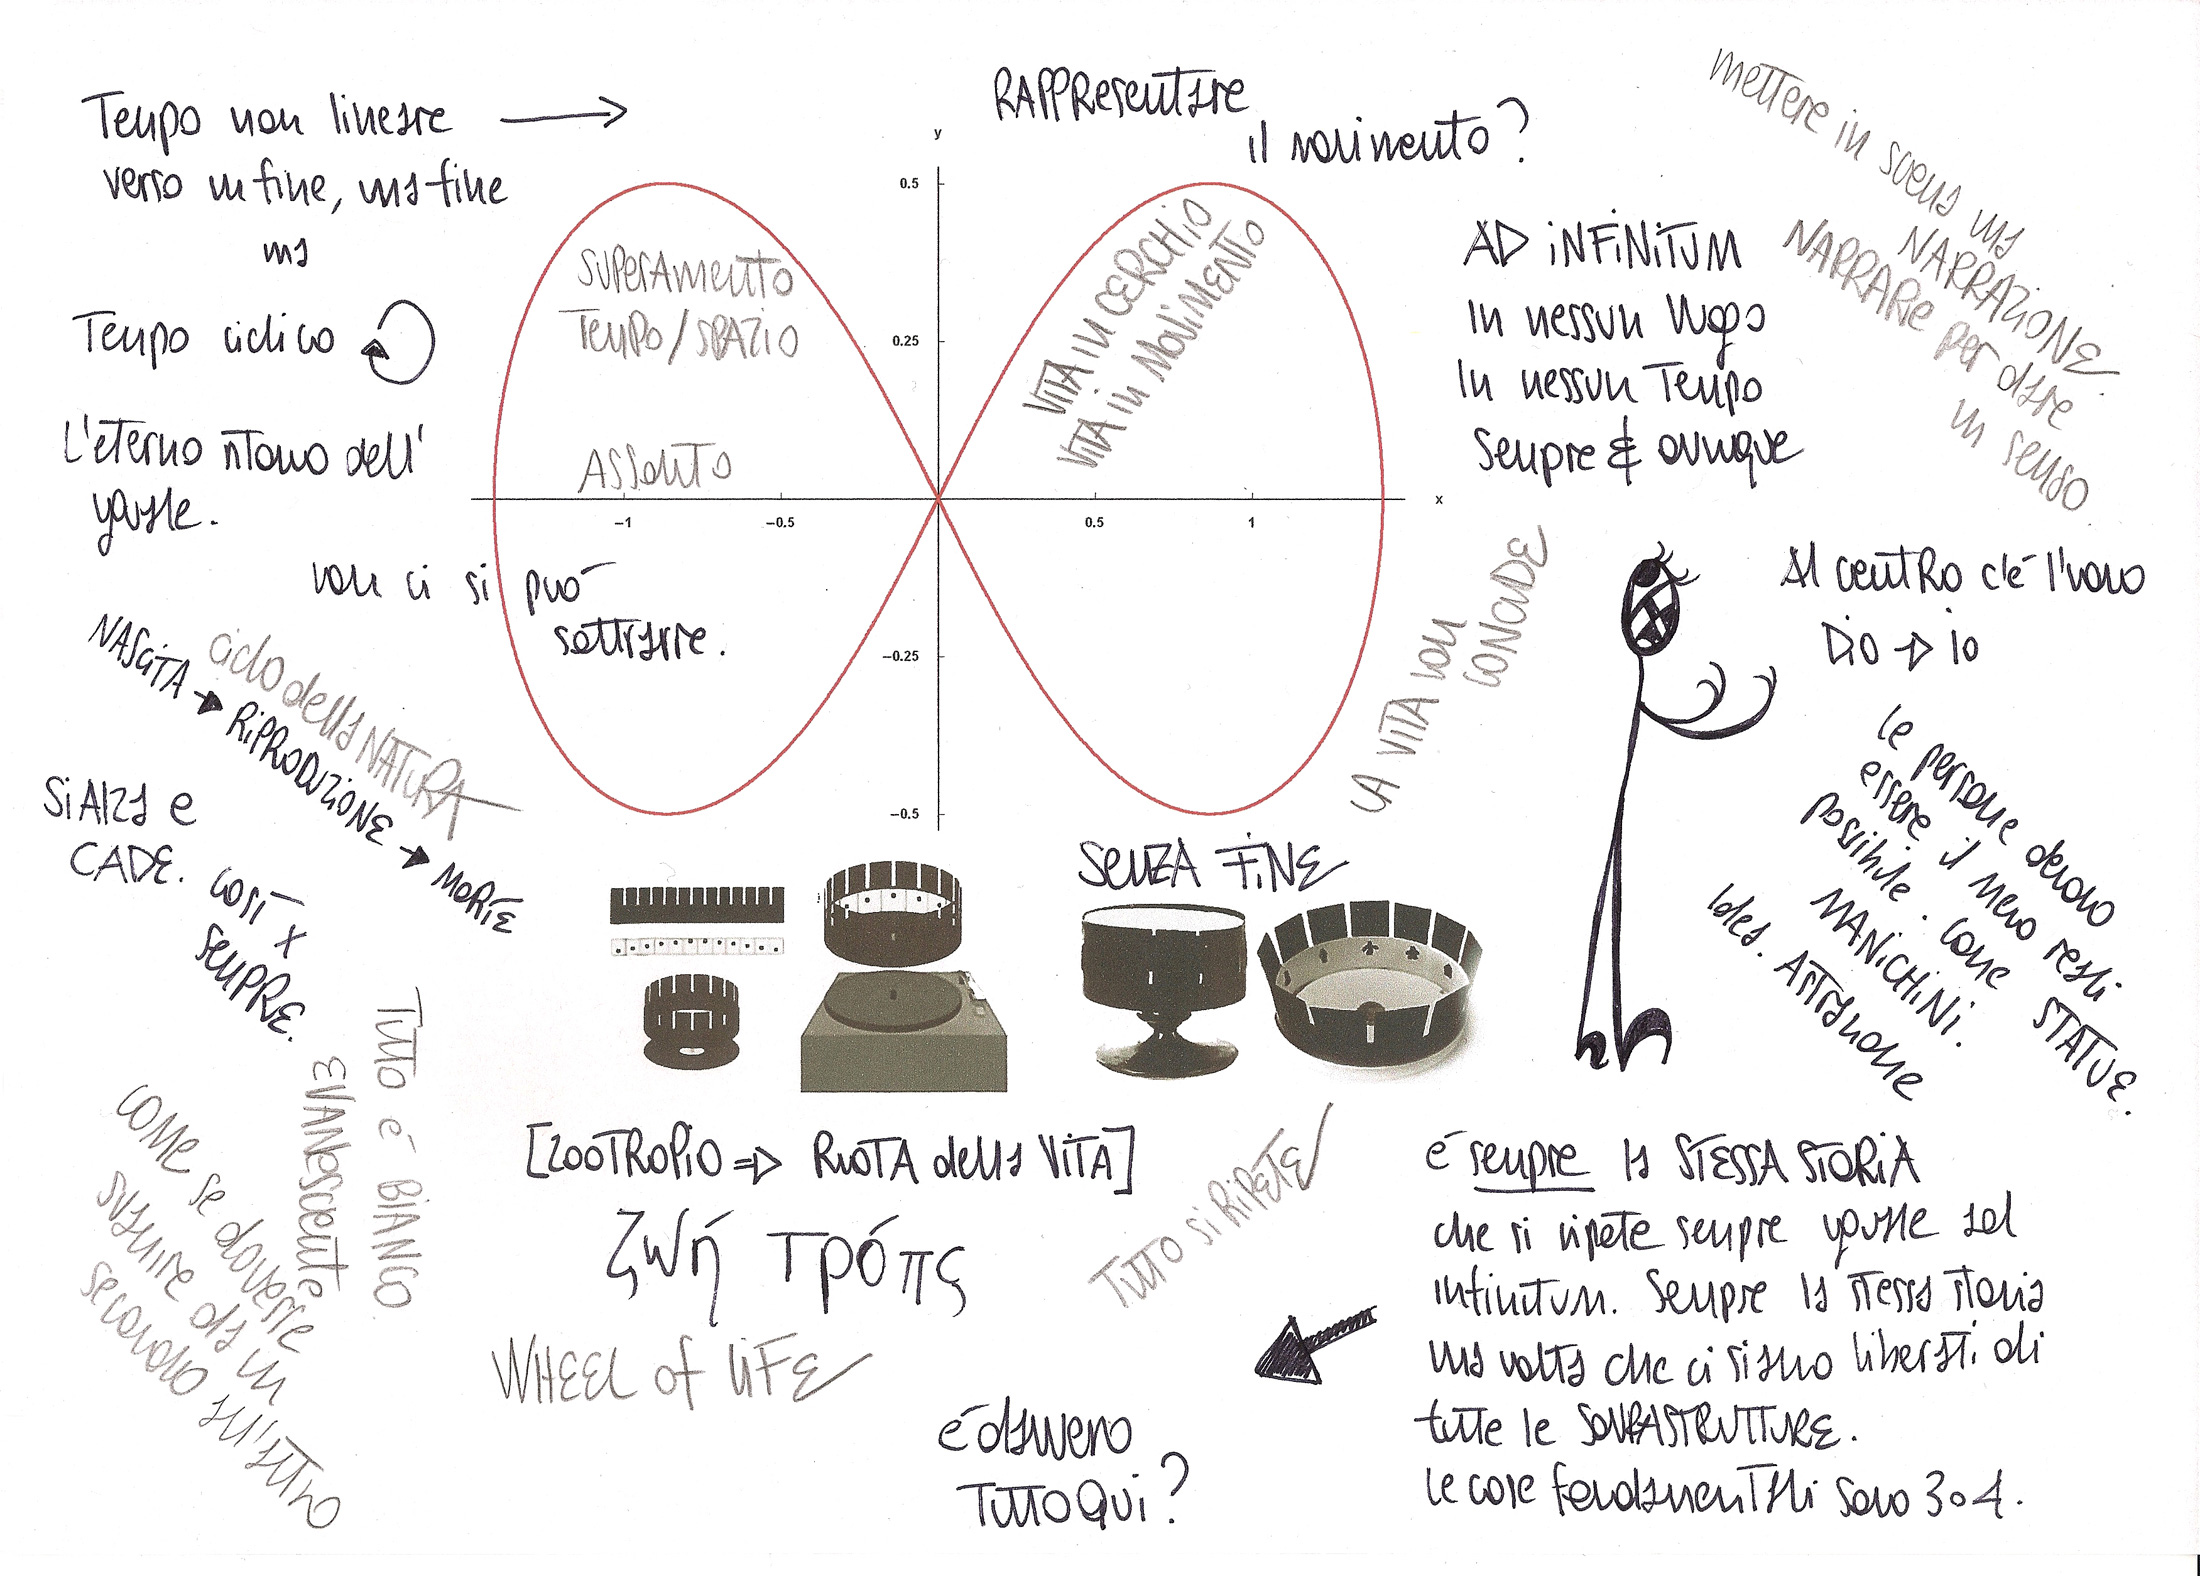 Tempo non lineare
verso un fine, una fine
ma
Tempo ciclico
L'eterno ritorno dell'
uguale.
non ci si può
sottrarre.
RAPPResentare
il movimento?
y
0.5
0.25
-0.25
-0.5
-1
-0.5
0.5
1
x
SUPERAmento
Tempo/SPAZIO
ASSOluto
VITA in CERCHIO
VITA in MOVIMENTO
AD iNFiNiTUM
In nessun luogo
In nessun Tempo
Sempre & ovunque
mettere in scena una
NARRAZIONE.
NARRARe per dare
un senso
Al centRo c'è l'uomo
DiO → io
le persone devono
essere il meno reali
possibile. come STATUE.
MANiCHiNi.
Idea. ASTRAzione
LA VITA non
CONCLUDE
NASCiTA → RiPRODUZIONE → MORTE
ciclo della NATURA
Si Alza e
CADE. così x
SEMPRE.
TUTTO è BIANCO
EVANESCENTE
COMe se dovesse
svanire da un
secondo all'altro
SENZA FiNE
[ZOOTROPiO => RUOTA della ViTA]
ζωή τρόπς
WHEEL of LiFE
TUTTO Si RiPETE
è davvero
TUTTO QUi?
è sempre la STESSA STORiA
che si ripete sempre uguale ad
infinitum. Sempre la stessa storia
una volta che ci siamo liberati di
tutte le SOVRASTRUTTURE.
le cose fondamenTAli sono 3 o 4.